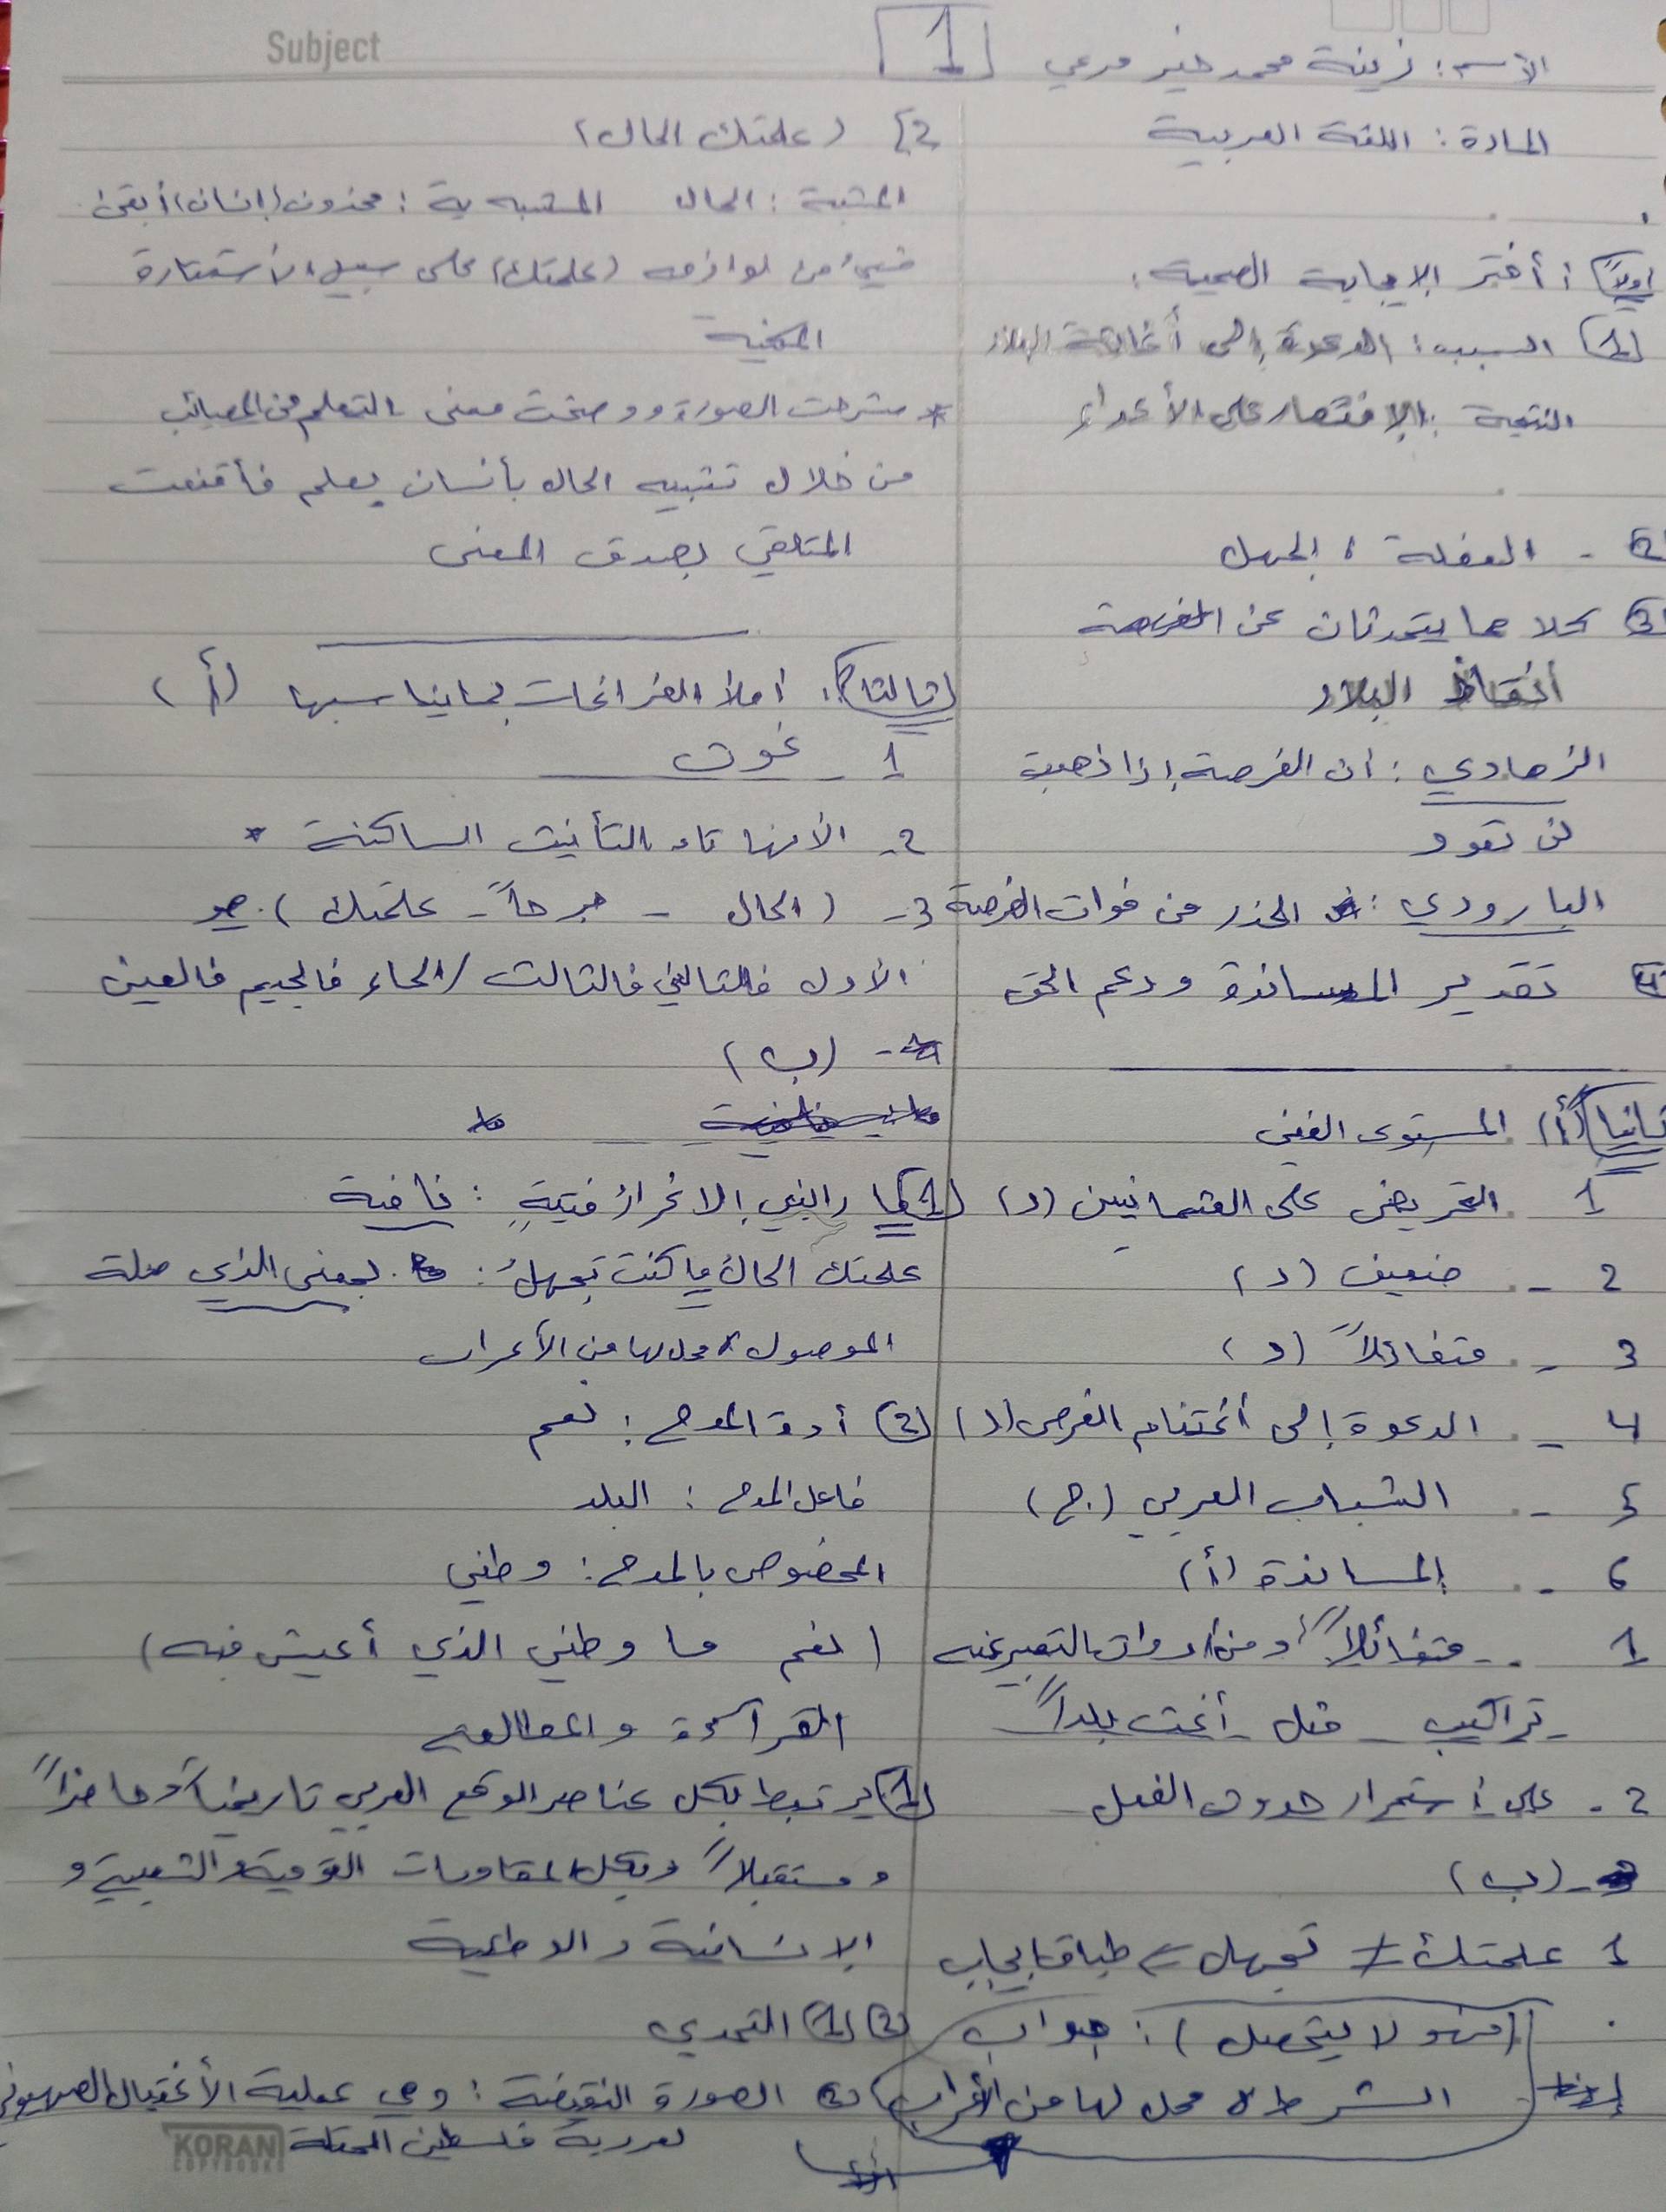 Subject
الاسم: زينة محمد خير مرعي
1
المادة: اللغة العربية
اولاً: أختر الإجابة الصحيحة:
1) السبب: الدعوة إلى أغاثة البلاد
النتيجة: الإنتصار على الأعداء
2 - الغفلة، الجهل
3) كلا هما يتحدثان عن الفرصة
أنقاظ البلاد
الزهاوي: ان الفرصة إذا ذهبت
لن تعود
البارودي: الحذر من فوات الفرصة
4) تقدير المساندة ودعم الحق
ثانيا (أ) المستوى الفني
1 التحريض على العثمانيين (د)
2 - ضعيف (د)
3 - متفائلاً (د)
4 - الدعوة إلى أغتنام الفرص (د)
5 - الشباب العربي (ج)
6 - المساندة (أ)
1 - متفائلاً ومن أدوات التعبير عنه
تراكيب - مثل - أغث بلداً
2 - على أستمرار حدوث الفعل
- (ب)
1 علمتك ≠ تجهل => طباق إيجاب
(فهو لا يتحصل): جواب
الشرط لا محل لها من الأعراب
2) (علمتك الحال)
المشبة: الحال المشبه به: محذوف (إنسان) أبقى
شيء من لوازمه (علمتك) على سبيل الأستعارة
المكنية
* شرحت الصورة ووضحت معنى التعلم من المصائب
من خلال تشبيه الحال بأنسان يعلم فأقنعت
المتلقي بصدق المعنى
ثالثا: أملأ الفراغات بما يناسبها (أ)
1 - غوث
2 - الأنها تاء التأنيث الساكنة *
3 - (الحال - جرحاً - علمتك). هو
الأول فالثاني فالثالث / الحاء فالجيم فالعين
- (ب)
1) ما رابني إلا غرارُ فتيةٍ: نافية
علمتك الحالُ ما كنت تجهلُ: بمعنى الذي صلة
الموصول لا محل لها من الأعراب
2) أدة المدح: نعم
فاعل المدح: البلد
المخصوص بالمدح: وطني
(نعم ما وطني الذي أعيش فيه)
القرآءة والمطالعة
1) يرتبط بكل عناصر الوقع العربي تاريخياً وحاضراً
ومستقبلاً وبكل المقاومات القومية والشعبية و
الإنسانية والوطنية
2) 1) التحدي
2) الصورة النقيضة: وهي عملية الأغتيال الصهيوني
لعروبة فلسطين المحتلة
KORAN
COPYBOOKS